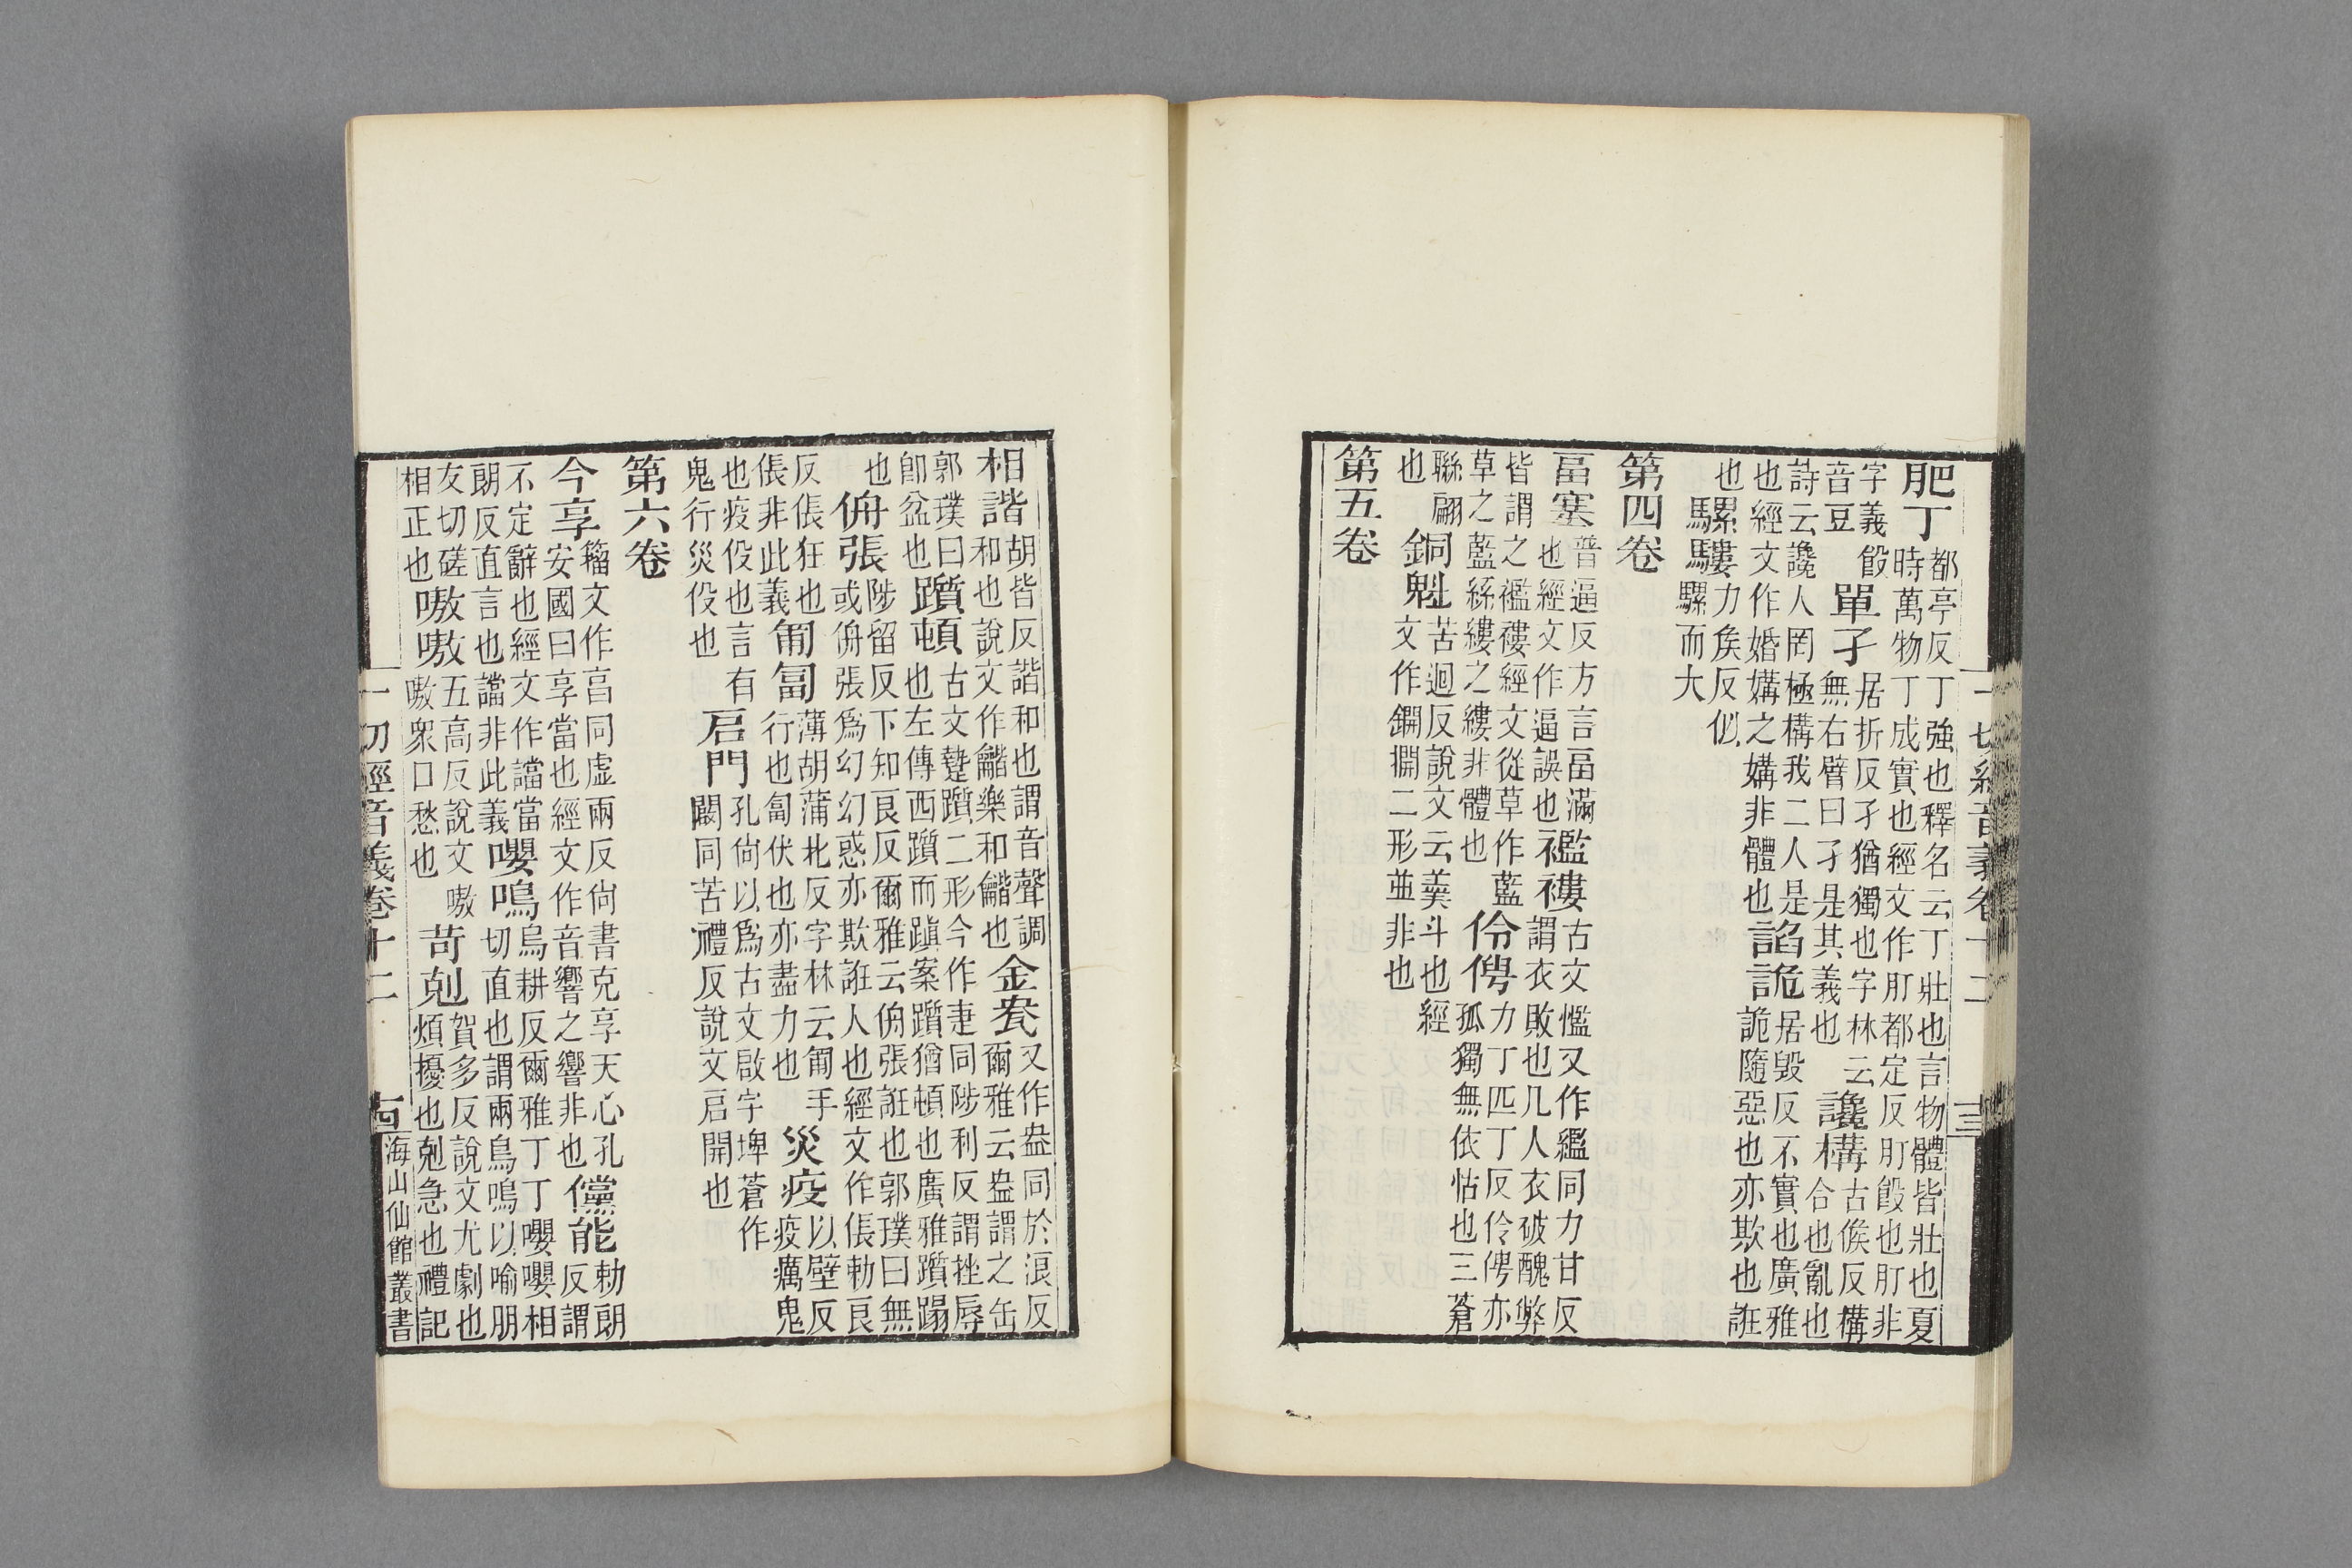 肥丁都亭反丁強也釋名云丁壯也言物體皆壯也夏時萬物丁成實也經文作肛都定反肛飣也肛非
字義飣音豆單孑居折反孑猶獨也字林云無右臂曰孑是其義也讒構古候反構合也亂也
詩云讒人罔極構我二人是也經文作婚媾之媾非體也諂詭居毀反不實也廣雅詭隨惡也亦欺也誑
也騾䮫力矦反似騾而大
第四卷
畐塞普逼反方言畐滿也經文作逼誤也襤褸古文㡮又作繿同力甘反謂衣敗也凡人衣破醜弊
皆謂之襤褸經文從草作藍草之藍絲縷之縷非體也伶俜力丁匹丁反伶俜亦孤獨無依怙也三蒼
聯翩也銅魁苦迴反說文云羹斗也經文作鐦撊二形並非也
第五卷
相諧胡皆反諧和也謂音聲調和也說文作龤樂和龤也金瓫又作盎同於浪反爾雅云盎謂之缶
郭璞曰即盆也躓頓古文躓二形今作疐同陟利反謂挫辱也左傳西躓而蹎案躓猶頓也廣雅躓蹋
也侜張陟留反下知良反爾雅云侜張誑也郭璞曰無或侜張爲幻幻惑亦欺誑人也經文作倀勅良
反倀狂也倀非此義匍匐薄胡蒲北反字林云匍手行也匐伏也亦盡力也災疫以壁反疫癘鬼
也疫伇也言有鬼行災伇也启門孔尙以爲古文啟字埤蒼作闙同苦禮反說文启開也
第六卷
今享籀文作亯同虛兩反尙書克享天心孔安國曰享當也經文作音響之響非也儻能勅朗反謂
不定辭也經文作讜當朗反直言也讜非此義嚶鳴烏耕反爾雅丁丁嚶嚶相切直也謂兩鳥鳴以喻朋
友切磋相正也嗷嗷五高反說文嗷嗷衆口愁也苛剋賀多反說文尤劇也煩擾也剋急也禮記
一切經音義卷十二
海山仙館叢書